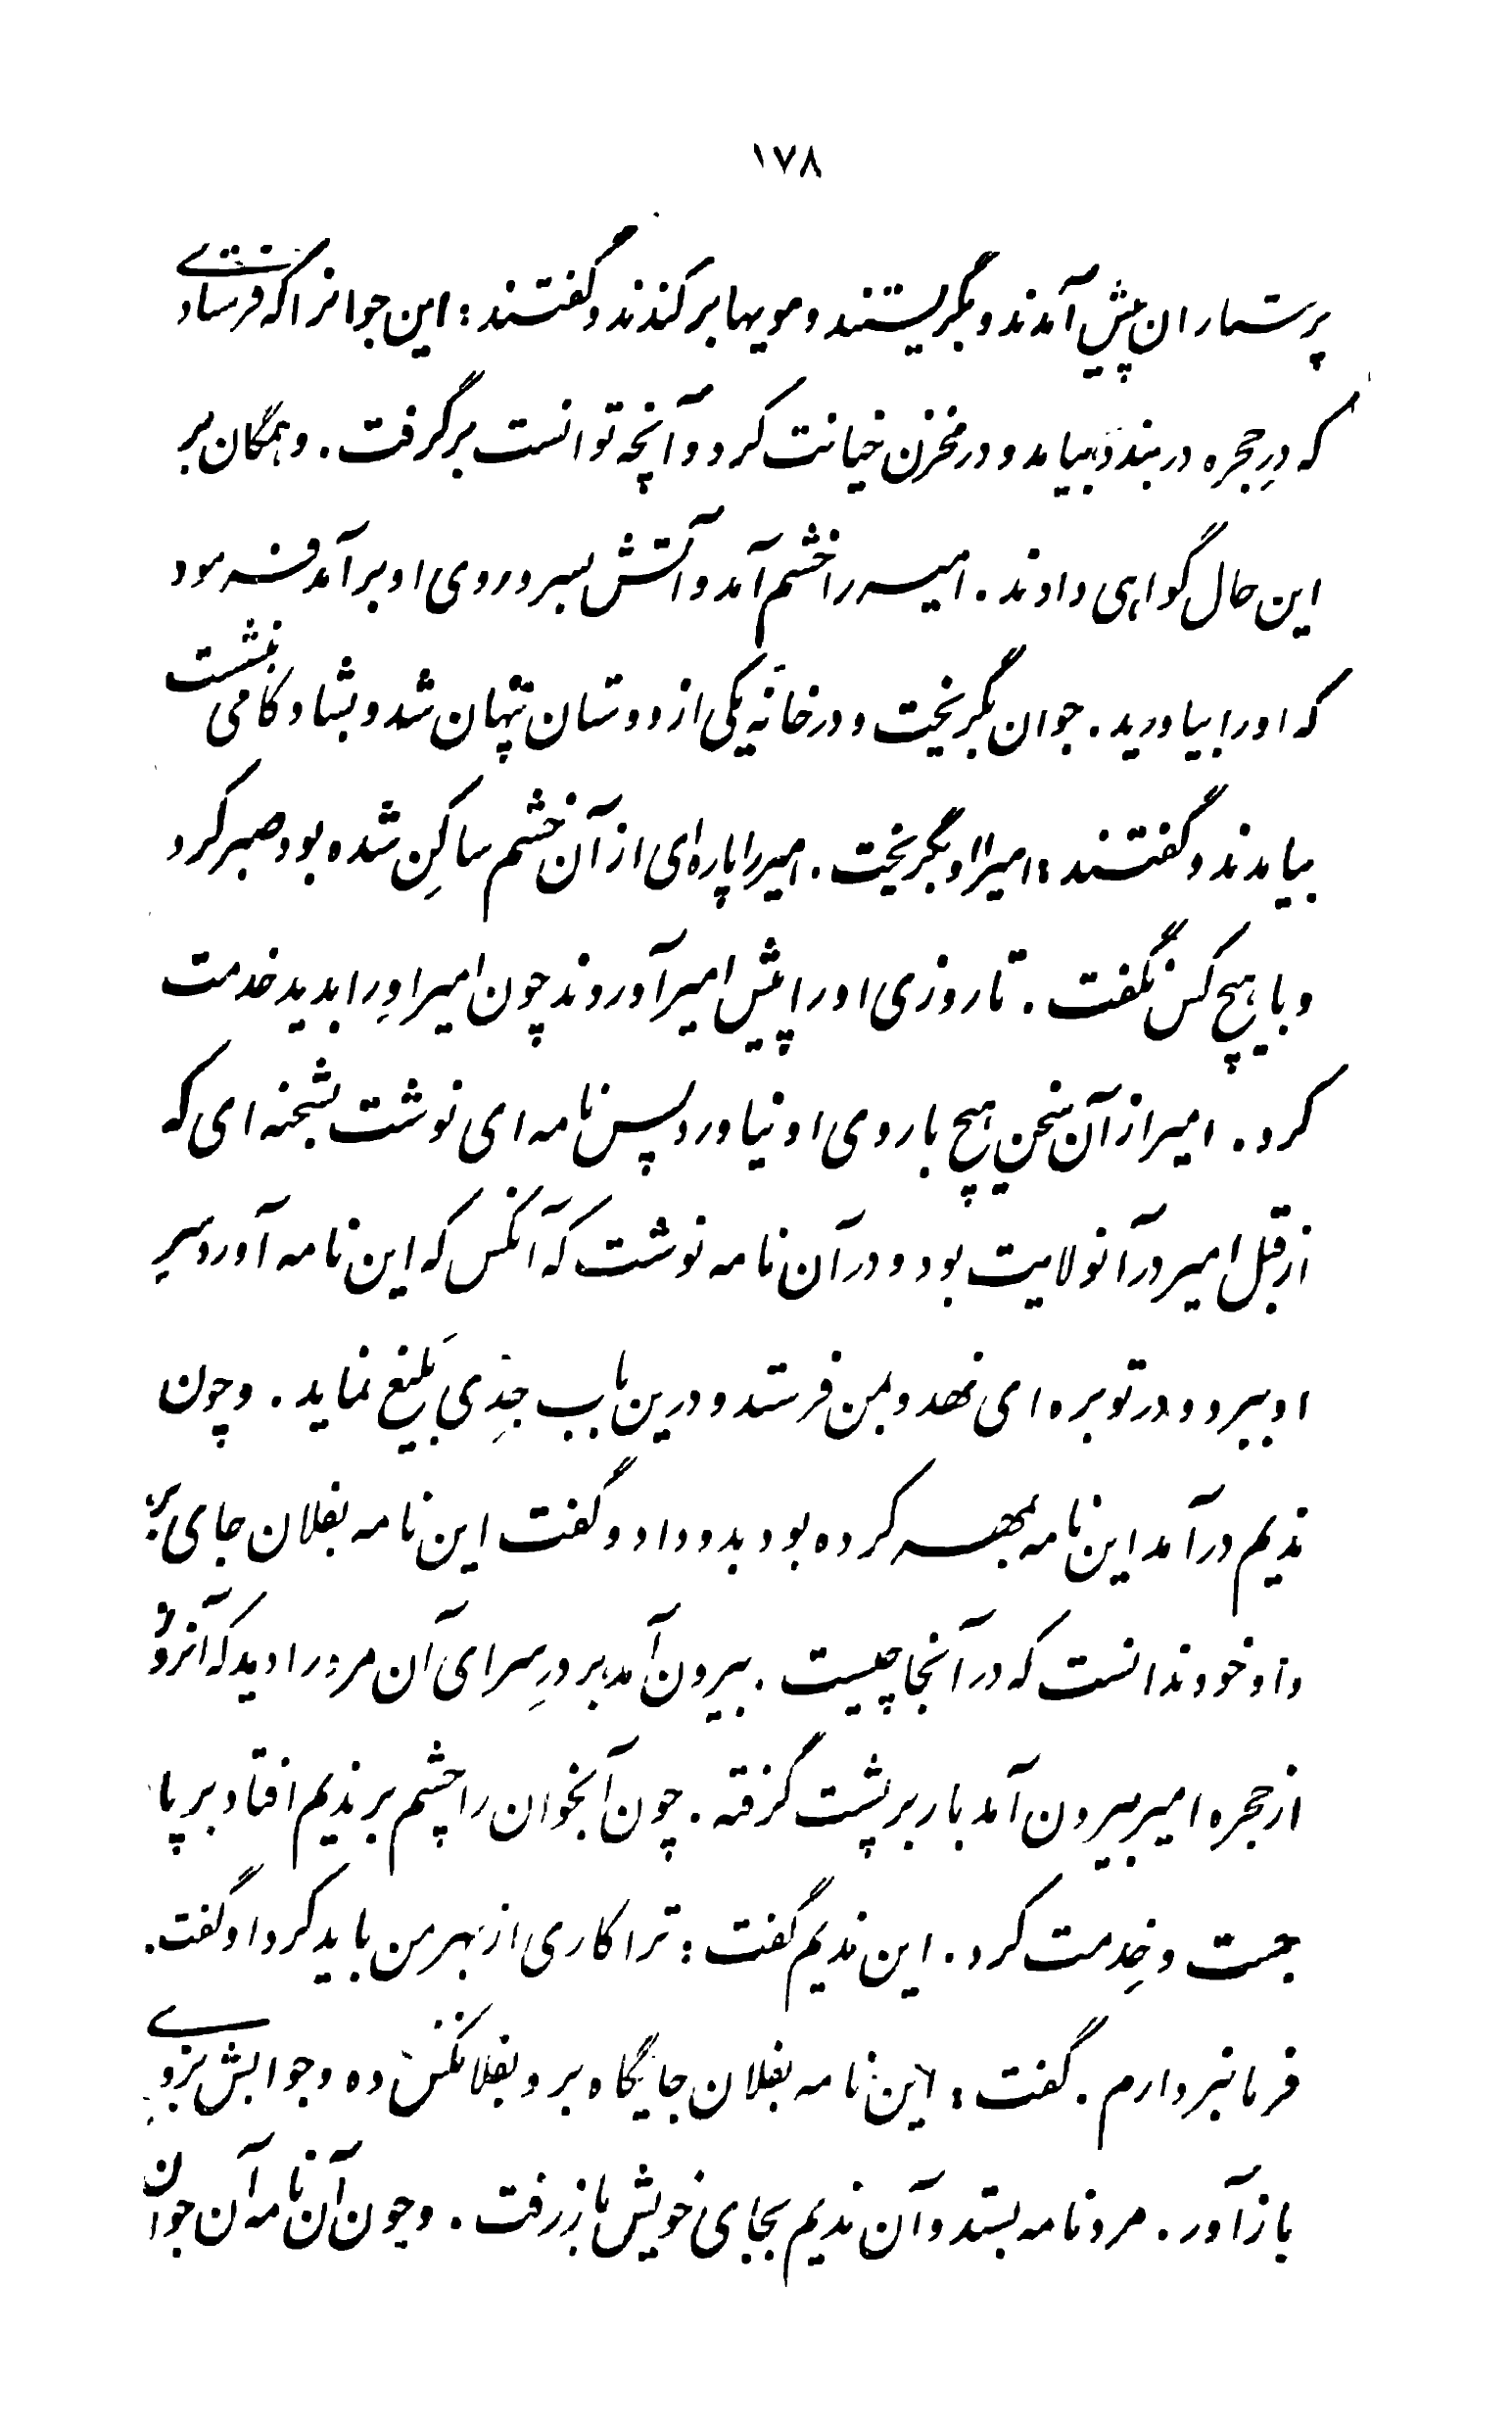 ۱۷۸
پرستاران پیش آمدند و بگریستند و مویها برکندند و گفتند : این جوانرا که فرستادی
که درِ حجره در بندد بیامد و در مخزن خیانت کرد و آنچه توانست برگرفت . و همگان بر
این حال گواهی دادند . امیر را خشم آمد و آتش بسر و روی او برآمد فرمود
که او را بیاورید . جوان بگریخت و در خانَه یکی از دوستان پنهان شد و بشادکامی بنشست
بیامدند و گفتند : امیرا او بگریخت . امیر را پاره‌ای از آن خشم ساکِن شده بود صبر کرد
و با هیچ کس نگفت . تا روزی او را پیش امیر آوردند چون امیر اورا بدید خدمت
کرد . امیر از آن سخن هیچ با روی او نیاورد پس نامه ای نوشت بشحنه ای که
از قبل امیر در آنولایت بود و در آن نامه نوشت که آنکس که این نامه آورد سر
او ببرد و در توبره ای نهد و بمن فرستد و درین باب جِدّی بَلیغ نماید . و چون
ندیم درآمد این نامه بمهر کرده بود بدو داد و گفت این نامه بفلان جای بر
داد خود ندانست که در آنجا چیست . بیرون آمد بر درِ سرای آن مرد را دید که آنروز
از حجره امیر بیرون آمد بار بر پشت گرفته . چون آنجوان را چشم بر ندیم افتاد بر پا
جست و خِدمت کرد . این ندیم گفت : ترا کاری از بهر من باید کرد او گفت .
فرمانبردارم . گفت : این نامه بفلان جایگاه بر و بفلانکس ده و جوابش بزودی
باز آور . مرد نامه بستد و آن ندیم بجای خویش باز رفت . و چون آن نامه آن جوان